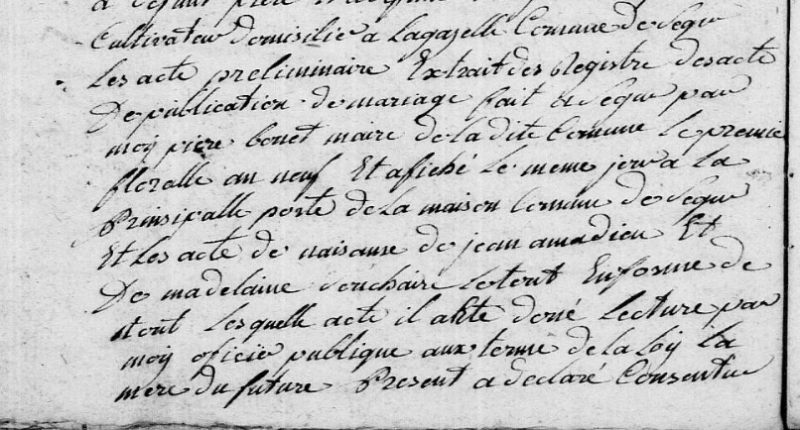 a defunt piere
Cultivateur domisilié a Lagazelle Comune de Segur
Les acte preliminaire Extrait des Registre desacte
De publication de mariage fait a Segur par
moy piere bonet maire de la dite Comune le premie
florealle an neuf Et afiché le meme jour a La
Prinsipalle porte de La maison Comune de Segur
Et Les acte de naisanse de jean amadieu Et
De madelaine Souchaire Letout Enforme de
tout Lesquelle acte il a été doné Lecture par
moy oficié publique aux terme de la Loy La
mere du future Present a declaré Consentir